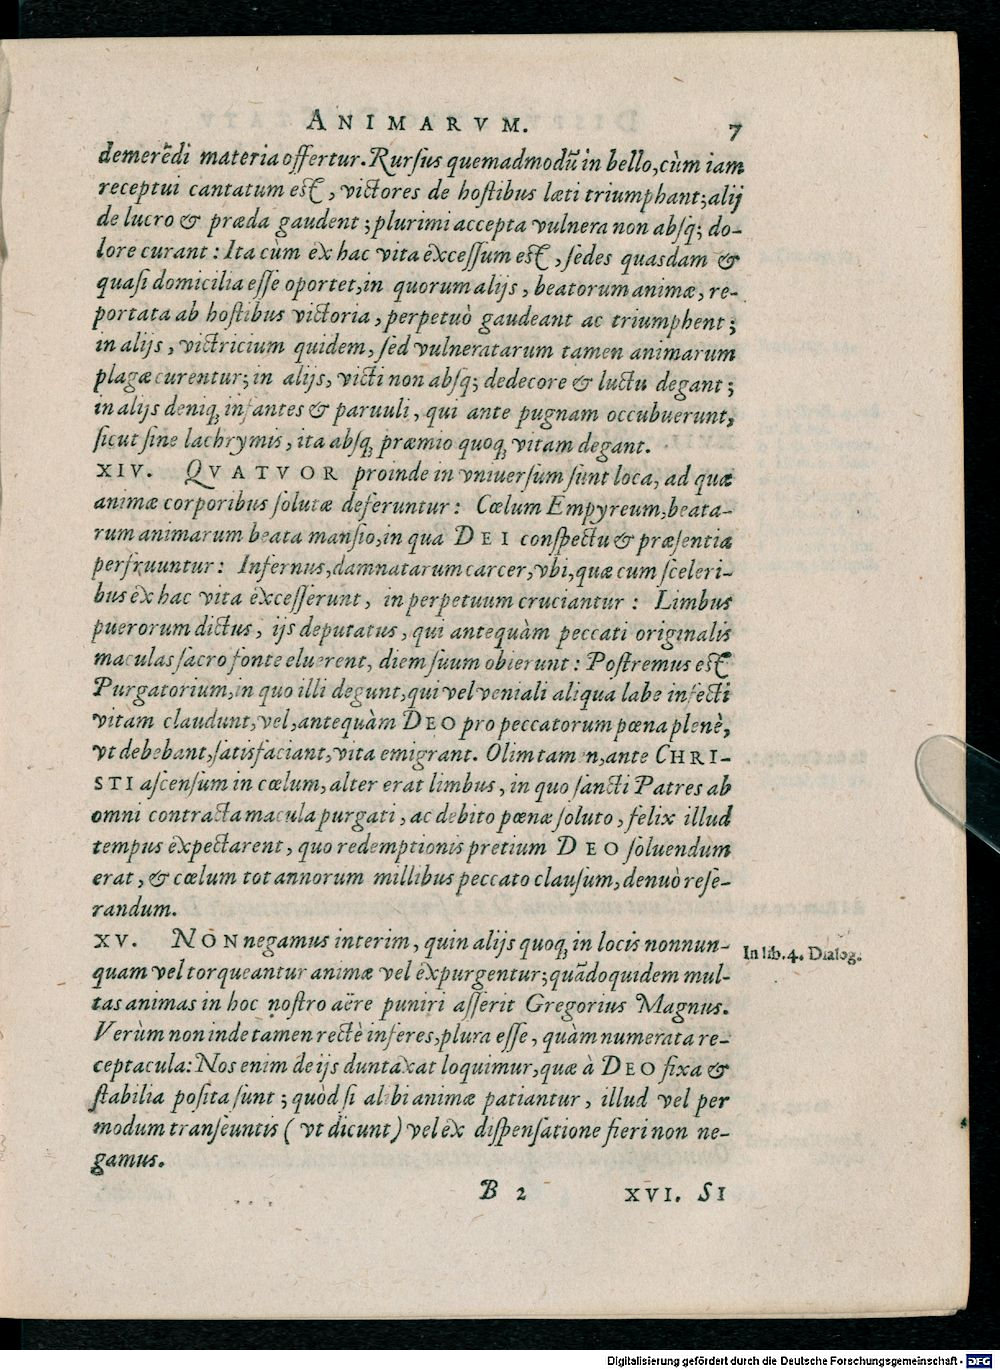 ANIMARVM. 7
demerẽdi materia offertur. Rursus quemadmodũ in bello, cùm iam
receptui cantatum est, victores de hostibus læti triumphant; alij
de lucro & præda gaudent; plurimi accepta vulnera non absq; do-
lore curant: Ita cùm èx hac vita èxcessum est, sedes quasdam &
quasi domicilia esse oportet, in quorum alijs, beatorum animæ, re-
portata ab hostibus victoria, perpetuò gaudeant ac triumphent;
in alijs, victricium quidem, sed vulneratarum tamen animarum
plagæ curentur; in alijs, victi non absq; dedecore & luctu degant;
in alijs deniq; infantes & paruuli, qui ante pugnam occubuerunt,
sicut sine lachrymis, ita absq; præmio quoq; vitam degant.
XIV. QVATVOR proinde in vniuersum sunt loca, ad quæ
animæ corporibus solutæ deferuntur: Cœlum Empyreum, beata-
rum animarum beata mansio, in qua DEI conspectu & præsentia
perfruuntur: Infernus, damnatarum carcer, vbi, quæ cum sceleri-
bus èx hac vita èxcesserunt, in perpetuum cruciantur: Limbus
puerorum dictus, ijs deputatus, qui antequàm peccati originalis
maculas sacro fonte eluerent, diem suum obierunt: Postremus est
Purgatorium, in quo illi degunt, qui vel veniali aliqua labe infecti
vitam claudunt, vel, antequàm DEO pro peccatorum pœna plenè,
vt debebant, satisfaciant, vita emigrant. Olim tamen, ante CHRI-
STI ascensum in cœlum, alter erat limbus, in quo sancti Patres ab
omni contracta macula purgati, ac debito pœnæ soluto, felix illud
tempus èxpectarent, quo redemptionis pretium DEO soluendum
erat, & cœlum tot annorum millibus peccato clausum, denuò rese-
randum.
XV. NON negamus interim, quin alijs quoq; in locis nonnun-
In lib. 4. Dialog.
quam vel torqueantur animæ vel èxpurgentur; quãdoquidem mul-
tas animas in hoc nostro aëre puniri asserit Gregorius Magnus.
Verùm non inde tamen rectè inferes, plura esse, quàm numerata re-
ceptacula: Nos enim de ijs duntaxat loquimur, quæ à DEO fixa &
stabilia posita sunt; quòd si alibi animæ patiantur, illud vel per
modum transeuntis (vt dicunt) vel èx dispensatione fieri non ne-
gamus.
B 2 XVI. SI
Digitalisierung gefördert durch die Deutsche Forschungsgemeinschaft - DFG